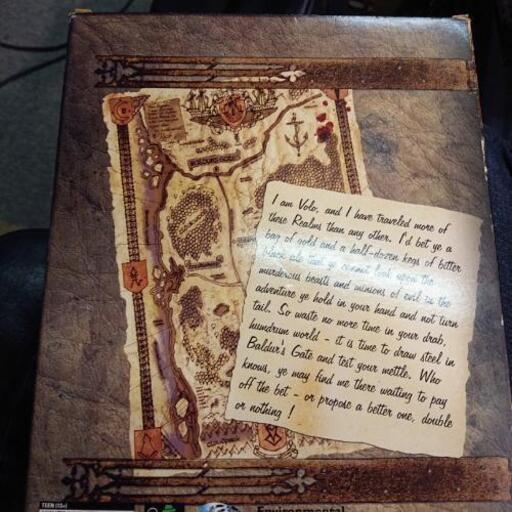 I am Volo, and I have traveled more of
these Realms than any other. I'd bet ye a
bag of gold and a half-dozen kegs of bitter
black ale that ye cannot look upon the
murderous beasts and minions of evil in the
adventure ye hold in your hand and not turn
tail. So waste no more time in your drab,
humdrum world - it is time to draw steel in
Baldur's Gate and test your mettle. Who
knows, ye may find me there waiting to pay
off the bet - or propose a better one, double
or nothing !
TEEN (13+)
Environmental